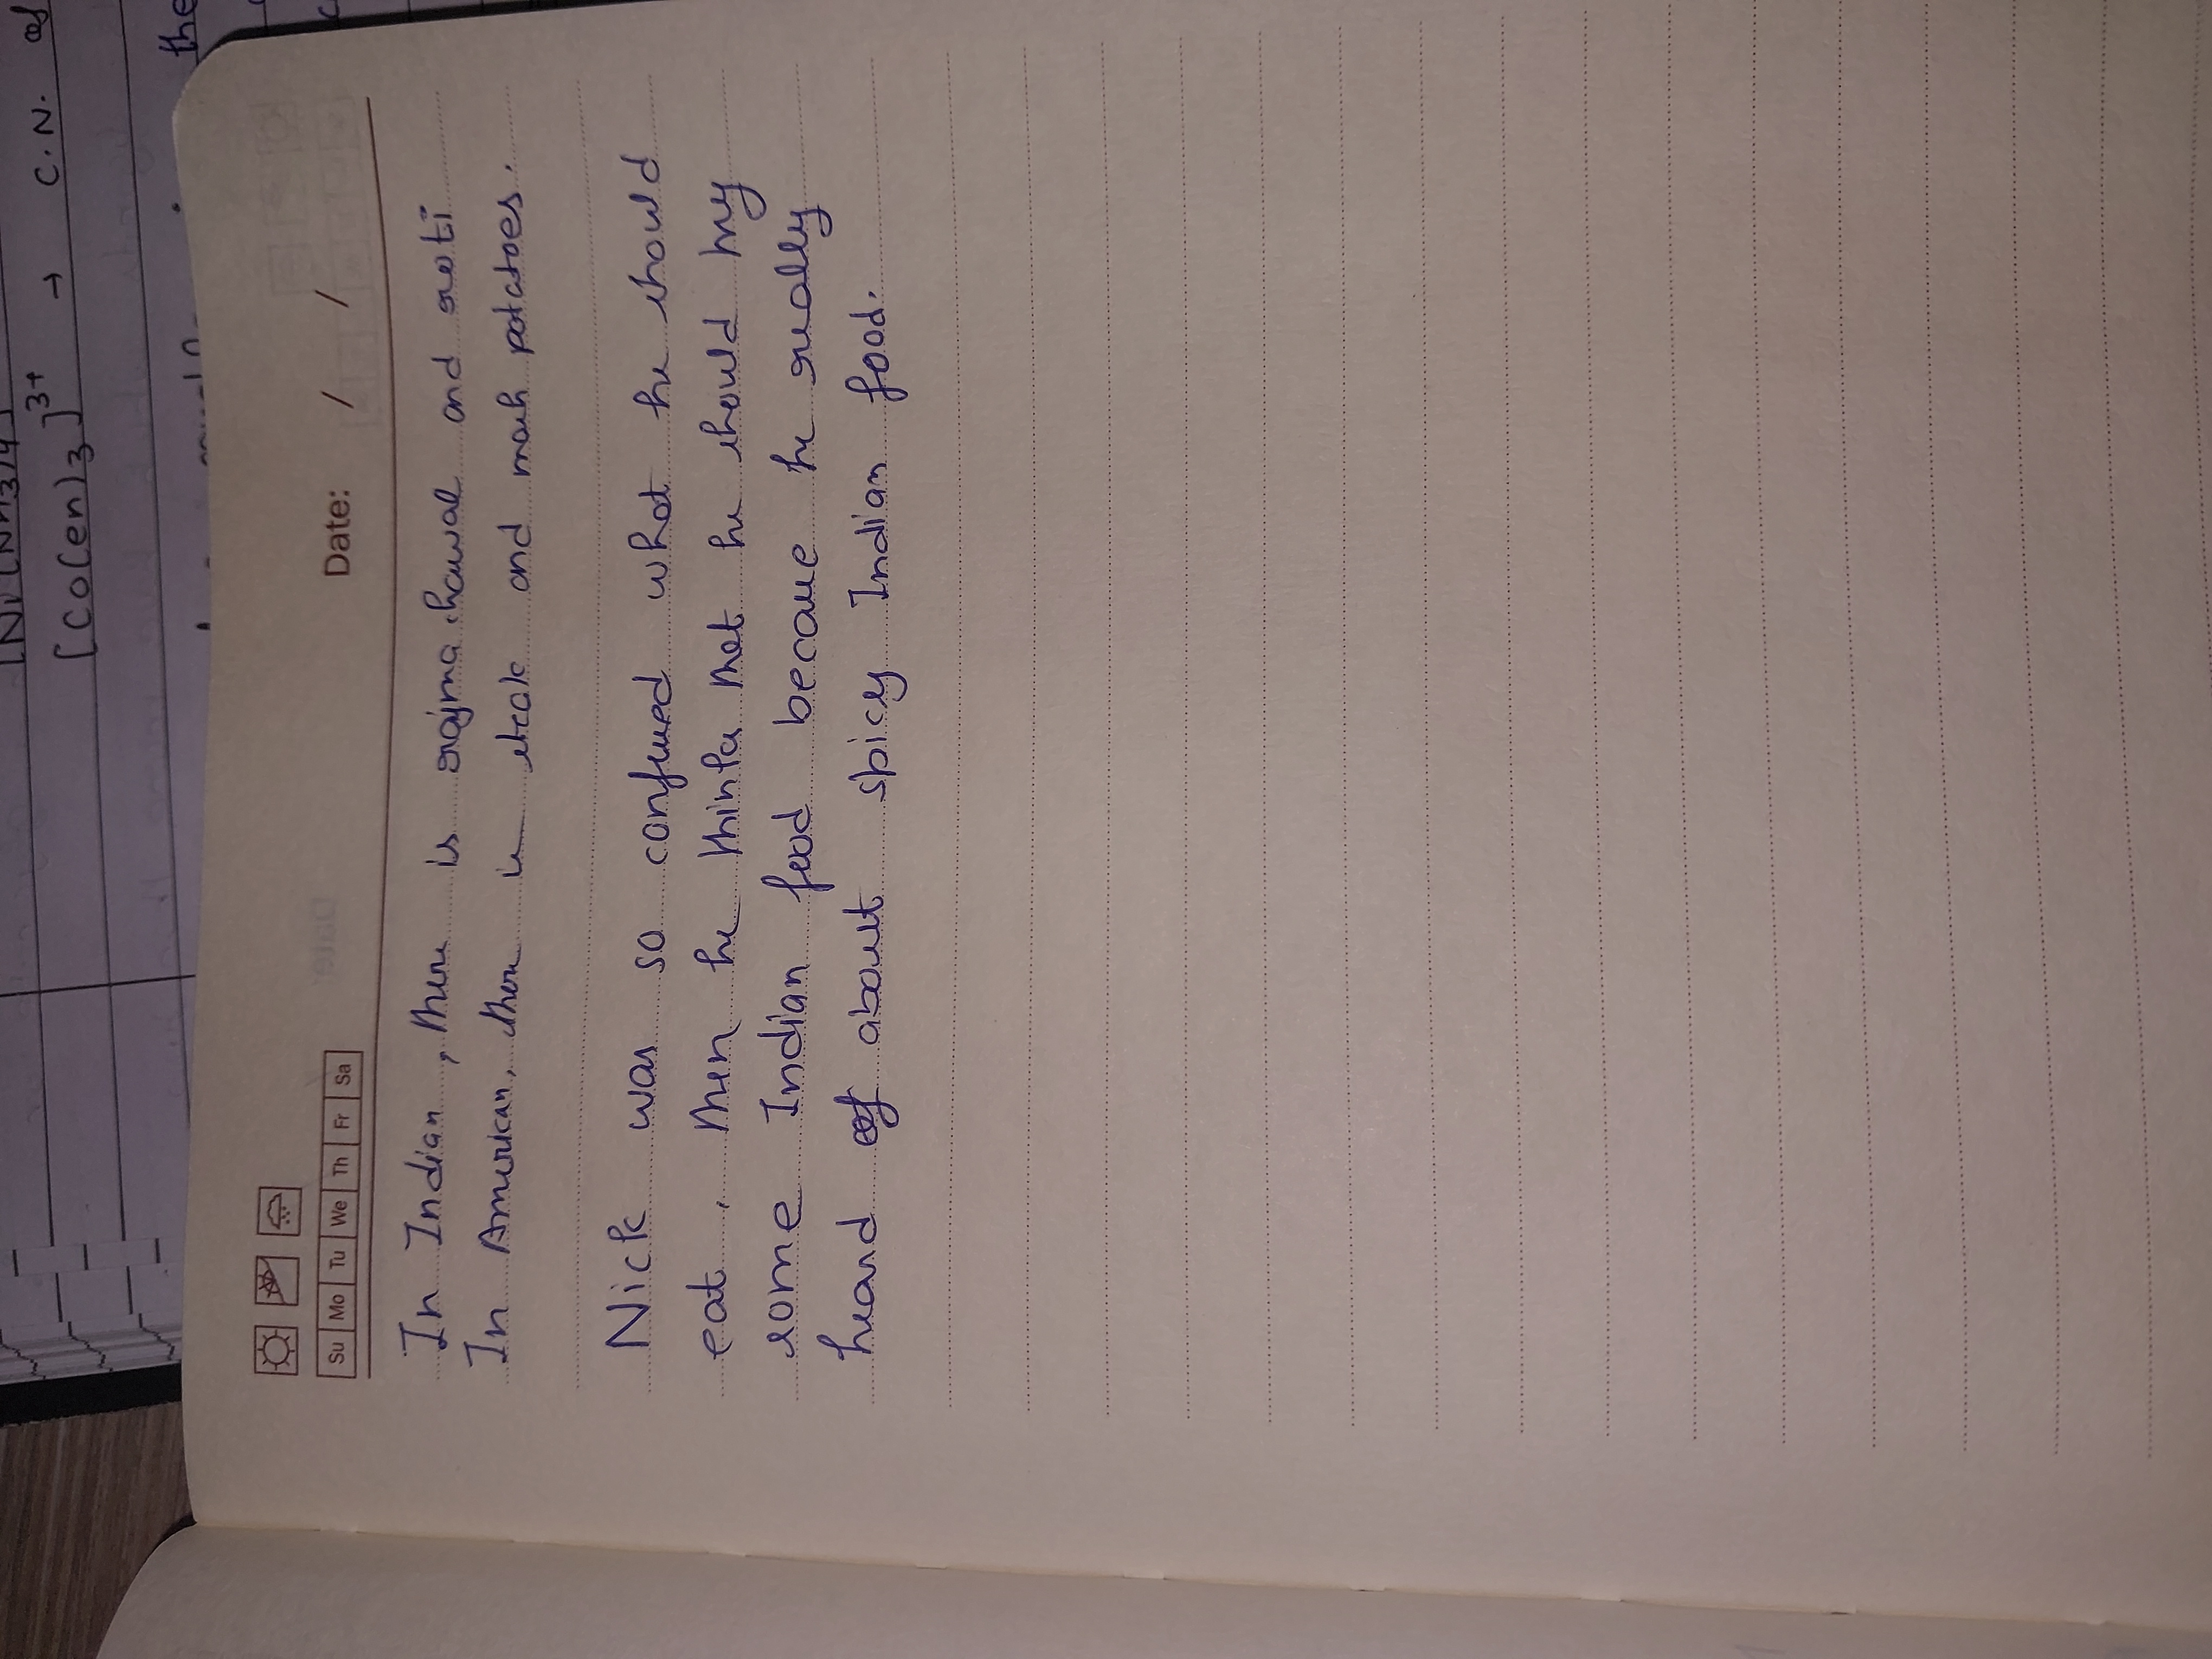 [Co(en)3]3+ → C.N. of
the
Su Mo Tu We Th Fr Sa
Date: / /
In Indian, there is rajma chawal and roti
In American, there is steak and mash potatoes.
Nick was so confused what he should
eat, then he thinks that he should try
some Indian food because he really
heard of about spicy Indian food.